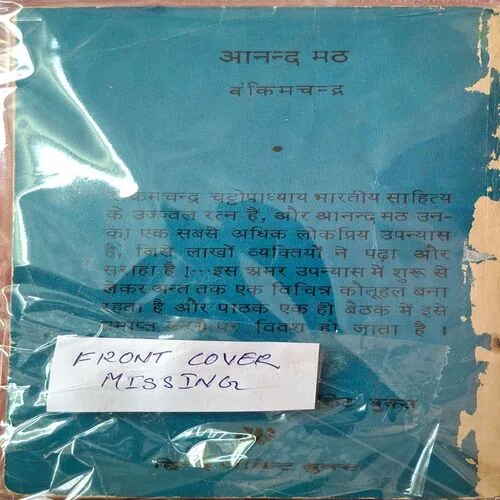 आनन्द मठ
बंकिमचन्द्र
बंकिमचन्द्र चट्टोपाध्याय भारतीय साहित्य
के उज्ज्वल रत्न हैं, और आनन्द मठ उन-
का एक सबसे अधिक लोकप्रिय उपन्यास
है, जिसे लाखों व्यक्तियों ने पढ़ा और
सराहा है !…इस अमर उपन्यास में शुरू से
लेकर अन्त तक एक विचित्र कौतूहल बना
रहता है और पाठक एक ही बैठक में इसे
समाप्त करने पर विवश हो जाता है ।
FRONT COVER
MISSING
पॉकेट बुक्स
हिन्द पॉकेट बुक्स